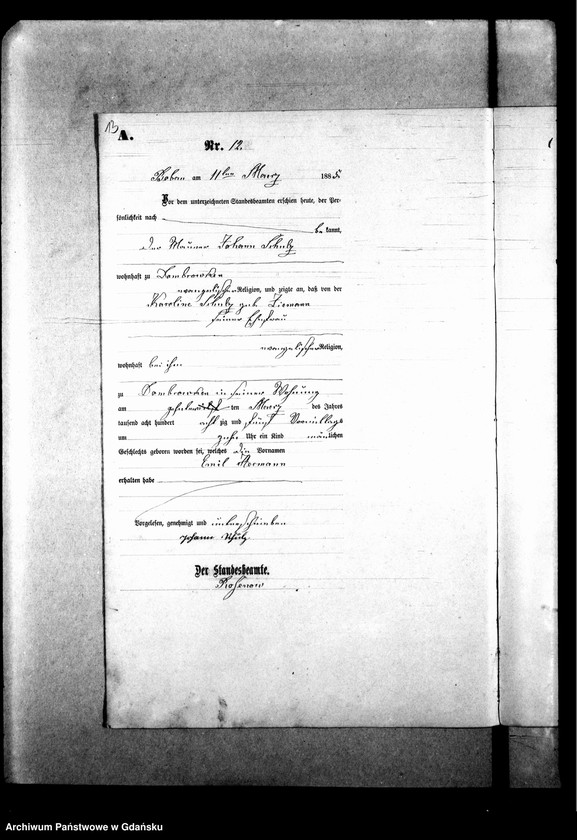 13
A.
Nr. 12.
Boban am 11ten März 1885.
Vor dem unterzeichneten Standesbeamten erschien heute, der Per-
sönlichkeit nach
be kannt,
der Maurer Johann Schulz
wohnhaft zu Dombrowken
evangelischer Religion, und zeigte an, daß von der
Karoline Schulz geb. Liemann
seiner Ehefrau
evangelischer Religion,
wohnhaft bei ihm
zu Dombrowken in seiner Wohnung
am zehnten ten März des Jahres
tausend acht hundert acht zig und fünf Vormittags
um zehn Uhr ein Kind männlichen
Geschlechts geboren worden sei, welches die Vornamen
Emil Hermann
erhalten habe
Vorgelesen, genehmigt und unterschrieben
Johann Schulz
Der Standesbeamte.
Rosenow
Archiwum Państwowe w Gdańsku